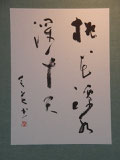 桃花潭水
深千尺